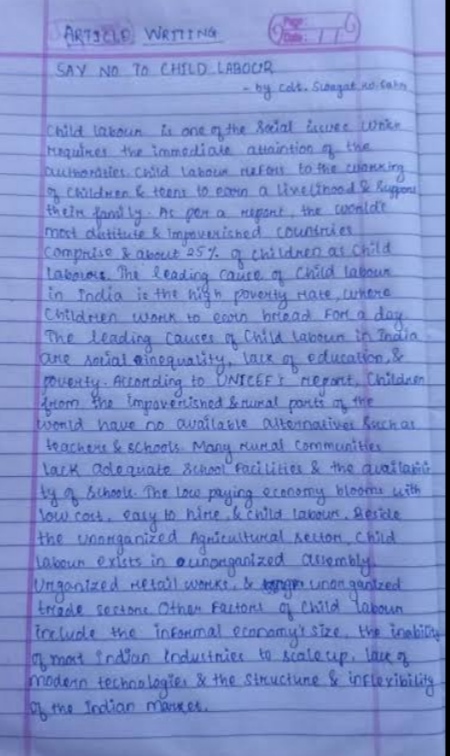 ARTICLE WRITING
Page:
Date: / /
SAY NO TO CHILD LABOUR
- by Cdt.
Child labour is one of the Social issues which
requires the immediate attaintion of the
authorities Child labour refers to the working
of children & teens to earn a livelihood & support
their family. As per a report, the world's
most destitute & impoverished countries
comprise & about 25% of children as child
labours. The leading cause of child labour
in India is the high poverty rate, where
Children work to earn bread for a day
The leading causes of Child labour in India
are social inequality, lack of education, &
poverty. According to UNICEF's report, Children
from the impoverished & rural parts of the
world have no available alternatives such as
teachers & schools. Many rural communities
lack adequate school facilities & the availabili
ty of schools. The low paying economy blooms with
low cost, easy to hire, & child labour. Beside
the unorganized Agricultural sector, child
labour exists in unorganized assembly,
Unganized retail works, & unorganized
trade sectors Other factors of child labour
include the informal economy's size, the inability
of most Indian industries to scale up, lack of
modern technologies & the structure & inflexibility
of the Indian market.